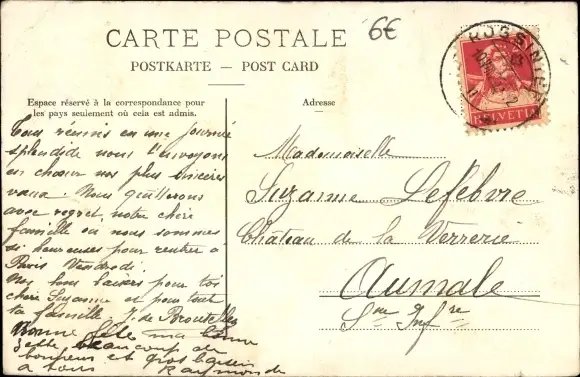 CARTE POSTALE
POSTKARTE — POST CARD
6€
ROSSINIÈRE
HELVETIA
Espace réservé à la correspondance pour
les pays seulement où cela est admis.
Adresse
Tous réunis en une journée
splendide nous t'envoyons
en chœur nos plus sincères
vœux. Nous quitterons
avec regret, notre chère
famille où nous sommes
si heureuses pour rentrer à
Paris Vendredi.
bons baisers pour toi
chère Suzanne et pour tout
ta famille. J. de
Bonne fête ma bonne
beaucoup de
bonheur et gros baisers
à tous Raymonde
Mademoiselle
Suzanne Lefebvre
Château de la Verrerie
Aumale
Sne Infre